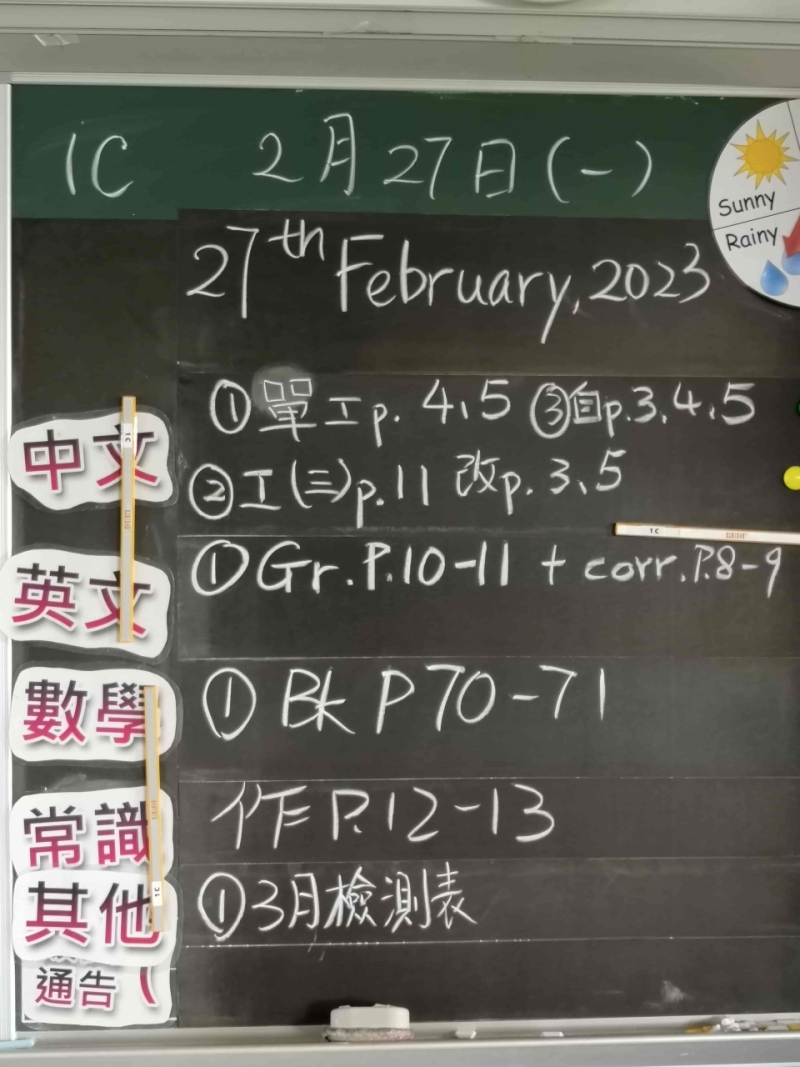 1C 2月27日(一)
Sunny
Rainy
27th February, 2023
中文 ①單工p. 4、5 ③自p.3、4、5
②工(三)p.11 改p. 3、5
1C
英文 ①Gr. P.10-11 + corr. P.8-9
數學 ①Bk P70-71
常識 作P.12-13
其他 ①3月檢測表
1C
通告